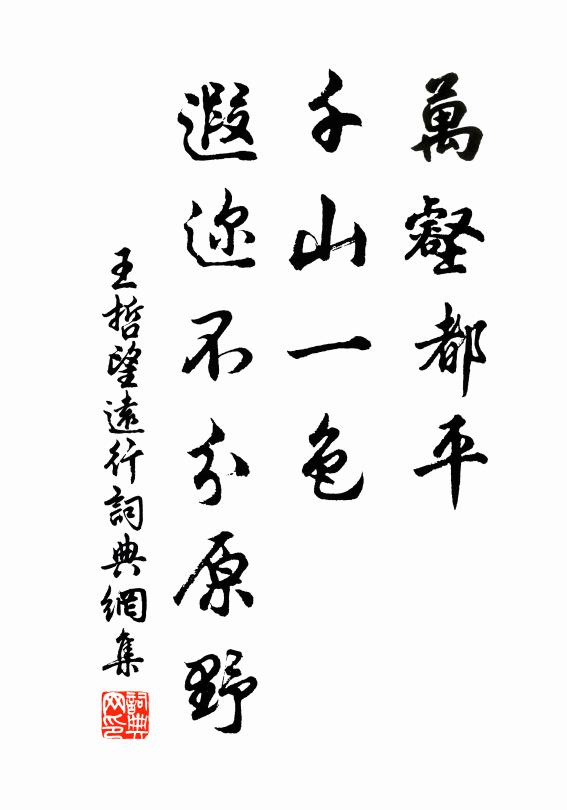 萬壑都平
千山一色
遐迩不分原野
王哲望遠行詞典網集
詞典网印